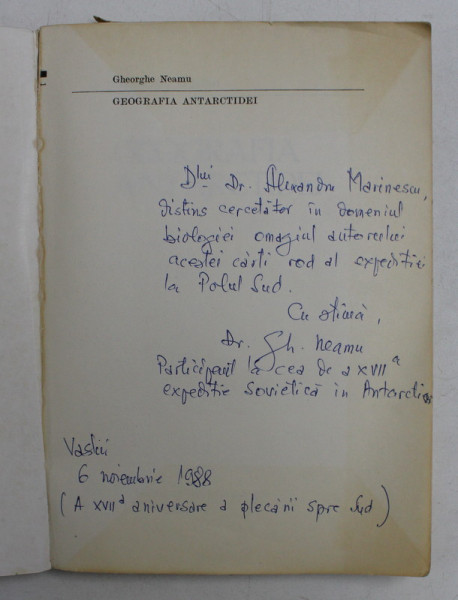 Gheorghe Neamu
GEOGRAFIA ANTARCTIDEI
Dlui Dr. Alexandru Marinescu,
distins cercetător în domeniul
biologiei omagiul autorului
acestei cărți rod al expediției
la Polul Sud.
Cu stimă,
Dr. Gh. Neamu
Participant la cea de a XVIIa
expediție sovietică în
6 noiembrie 1988
(A XVIIa aniversare a plecării spre Sud)